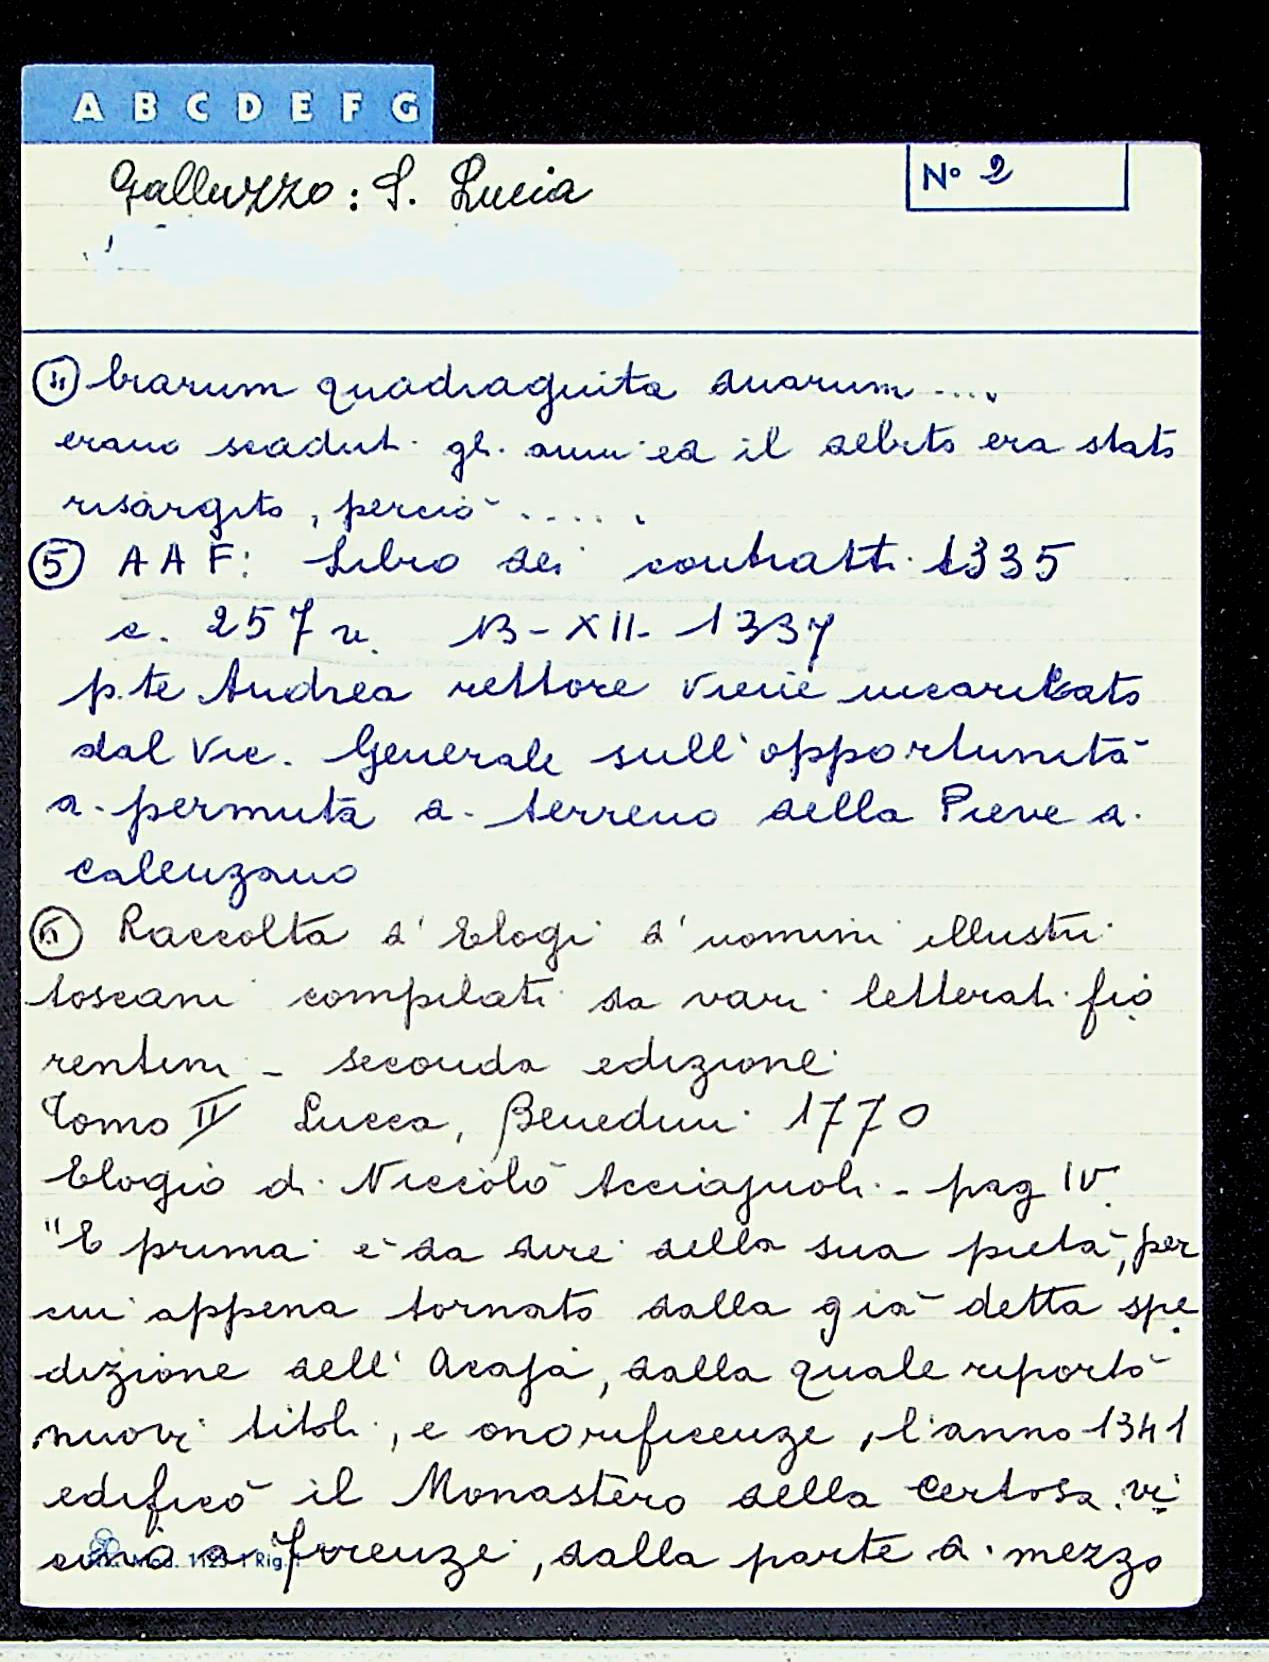 A B C D E F G
Galluzzo: S. Lucia
N° 2
④ brarum quadraguita duarum....
erano scaduti gli anni ed il debito era stato
risargito, perciò .....
⑤ AAF: Libro dei contratti 1335
c. 257 v. 13-XII-1337
p.te Andrea rettore viene incaricato
dal Vic. Generale sull'opportunità
di permuta di terreno della Pieve di
Calenzano
Raccolta d'Elogi d'uomini illustri
toscani compilati da vari letterati fio
rentini - seconda edizione
Tomo II Lucca, Benedini 1770
Elogio di Niccolò Acciajuoli - pag IV
"E prima è da dire della sua pietà, per
cui appena tornato dalla già detta spe
dizione dell'Acaja, dalla quale riportò
nuovi titoli, e onorificenze, l'anno 1341
edificò il Monastero della Certosa vi
cino a Firenze, dalla parte di mezzo
Mod. 1123-1 Rig.